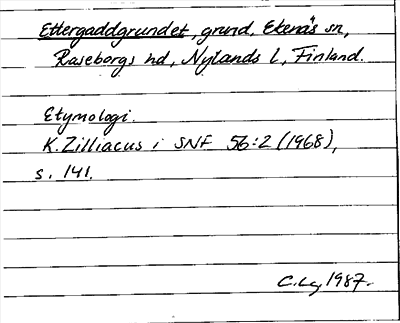 Ettergaddgrundet, grund, Ekenäs sn,
Raseborgs hd, Nylands l, Finland.
Etymologi.
K. Zilliacus i SNF 56:2 (1968),
s. 141.
1987.